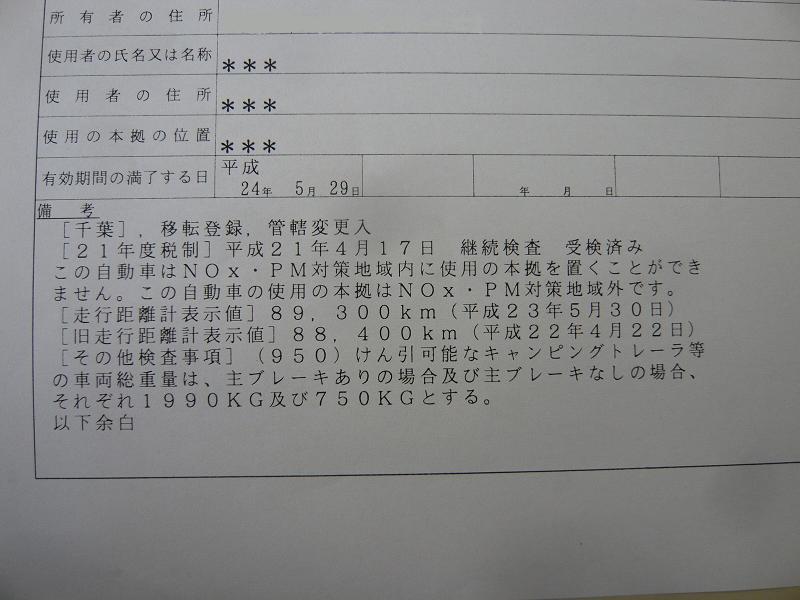 所有者の住所
使用者の氏名又は名称 ＊＊＊
使用者の住所 ＊＊＊
使用の本拠の位置 ＊＊＊
有効期間の満了する日 平成 24年 5月 29日 年 月 日
備考
［千葉］，移転登録，管轄変更入
［２１年度税制］平成２１年４月１７日　継続検査　受検済み
この自動車はＮＯｘ・ＰＭ対策地域内に使用の本拠を置くことができ
ません。この自動車の使用の本拠はＮＯｘ・ＰＭ対策地域外です。
［走行距離計表示値］８９，３００ｋｍ（平成２３年５月３０日）
［旧走行距離計表示値］８８，４００ｋｍ（平成２２年４月２２日）
［その他検査事項］（９５０）けん引可能なキャンピングトレーラ等
の車両総重量は、主ブレーキありの場合及び主ブレーキなしの場合、
それぞれ１９９０ＫＧ及び７５０ＫＧとする。
以下余白